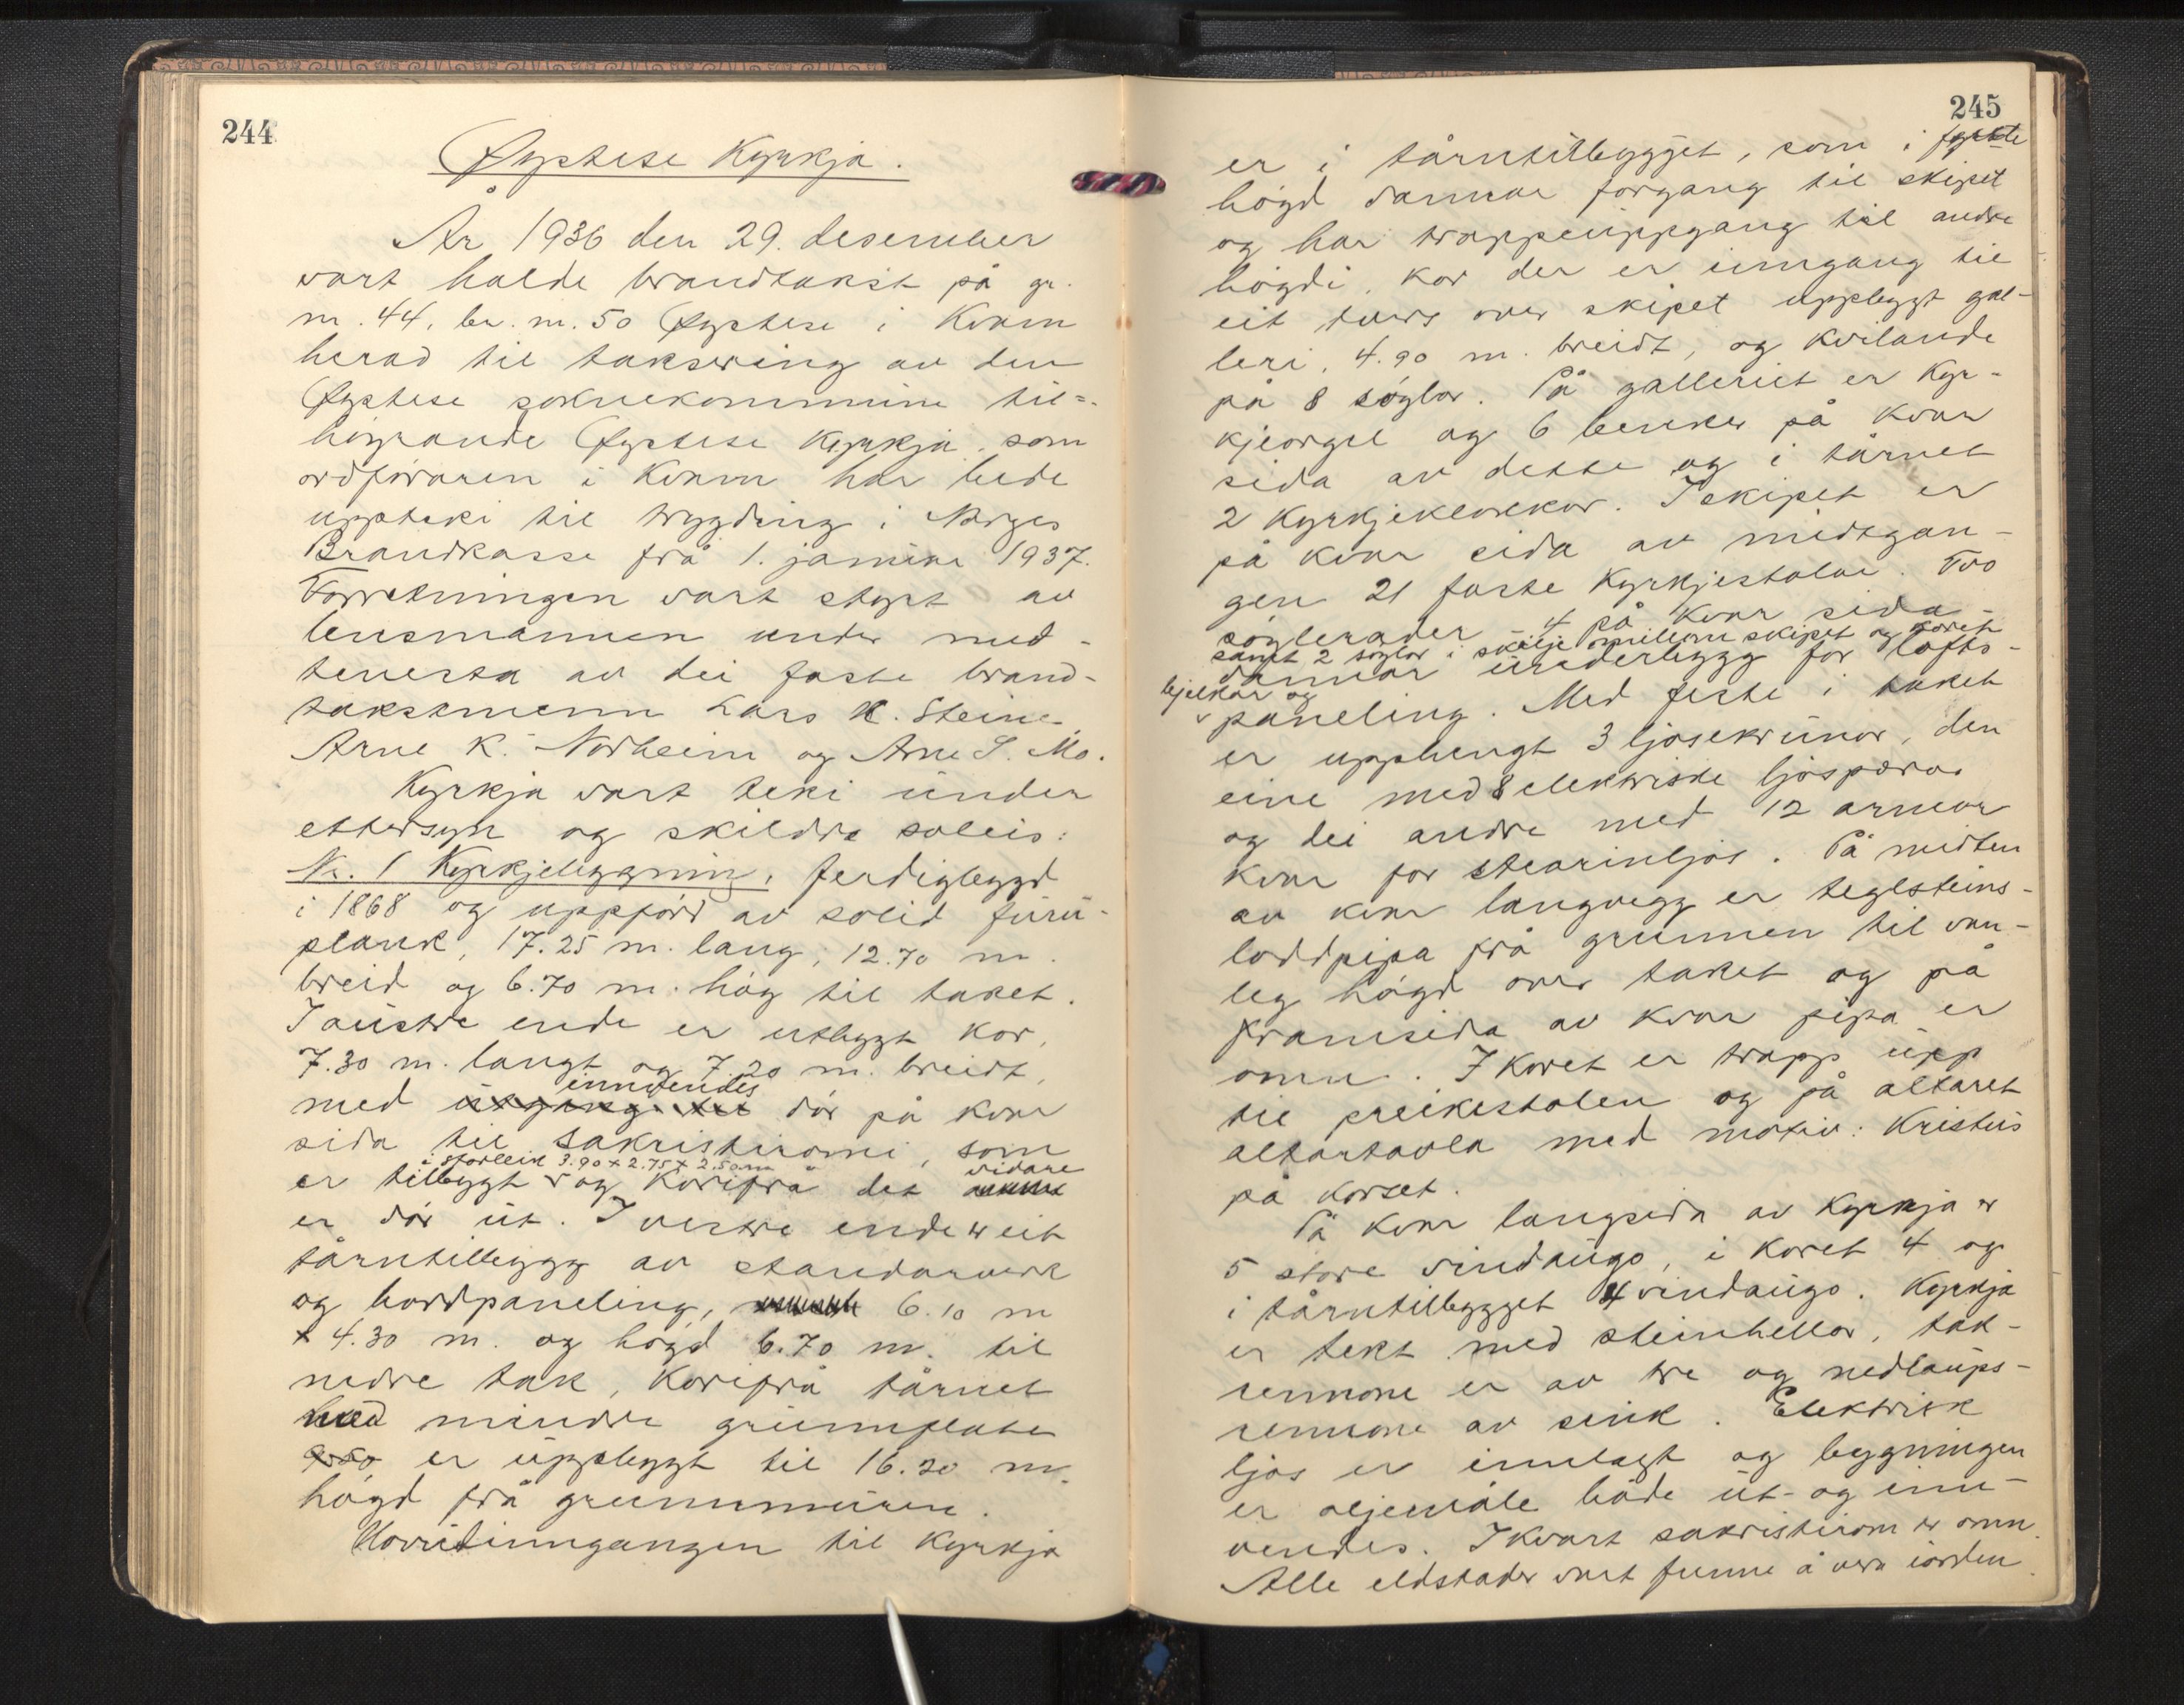 244
Øystese Kyrkja.
År 1936 den 29. desember
vart halde brandtakst på gr.
nr. 44, br. nr. 50 Øystese i Kvam
herad til taksering av den
Øystese soknekommune til=
høyrande Øystese Kyrkja, som
ordføraren i Kvam har bede
uppteki til trygding i Norges
Brandkasse frå 1. januar 1937.
Forretningen vart styrt av
lensmannen under med-
tenesta av dei faste brand-
takstmenn Lars K. Steine
Arne K. Norheim og Arne S. Mo.
Kyrkja vart teki under
ettersyn og skildra soleis:
Nr. 1 Kyrkjebygning, ferdigbygd
i 1868 og uppförd av solid furu-
plank, 17.25 m. lang, 12.70 m.
breid og 6.70 m. høg til taket.
I austre ende er utbygt kor,
7.30 m. langt og 7.20 m. breidt,
innvendes
med utgang til dör på kvar
sida til sakristiromi, som
i storleik 3.90 x 2.75 x 2.50 m vidare
er tilbygt og korifrå det
er dör ut. I vestre ende er eit
tårntilbygg av standarverk
og bordpaneling, 6.10 m
x 4.30 m. og høgd 6.70 m. til
nedre tak, korifrå tårnet
med mindre grunnflate
er uppbygt til 16.20 m.
høgd frå grunnmuren.
Hovudinngangen til Kyrkja
245
er i tårntilbygget, som i fyrste
högd dannar forgang til skipet
og har trappeuppgang til andre
högdi, kor der er inngang til
eit tvers over skipet uppbygt gal-
leri, 4.90 m. breidt, og kvilande
på 8 söylor. På galleriet er Kyr-
kjeorgel og 6 benker på kvar
sida av dette og i tårnet
2 Kyrkjeklokkor. I skipet er
på kvar sida av midtgan-
gen 21 faste Kyrkjestolar. Tvo
söylerader - 4 på kvar sida -
samt 2 söylor i skilje millom skipet og koret
dannar underbygg for lofts-
bjelkar og
paneling. Med feste i taket
er upphengt 3 ljosekrunor, den
eine med 8 elektriske ljospæror
og dei andre med 12 armar
kvar for stearinljos. På midten
av kvar langvegg er teglsteins-
loddpipa frå grunnen til van-
leg högd over taket og på
framsida av kvar pipa er
omn. I Koret er trapp upp
til preikestolen og på altaret
altartavla med motiv: Kristus
på korset.
På kvar langsida av Kyrkja er
5 store vindaugo, i koret 4 og
i tårntilbygget 4 vindaugo. Kyrkja
er tekt med steinhellor, tak-
rennone er av tre og nedlaups-
rennone av sink. Elektrisk
ljos er innlagt og bygningen
er oljemåle både ut- og inn-
vendes. I kvart sakristirom er omn.
Alle eldstader vart funne å vera iorden.